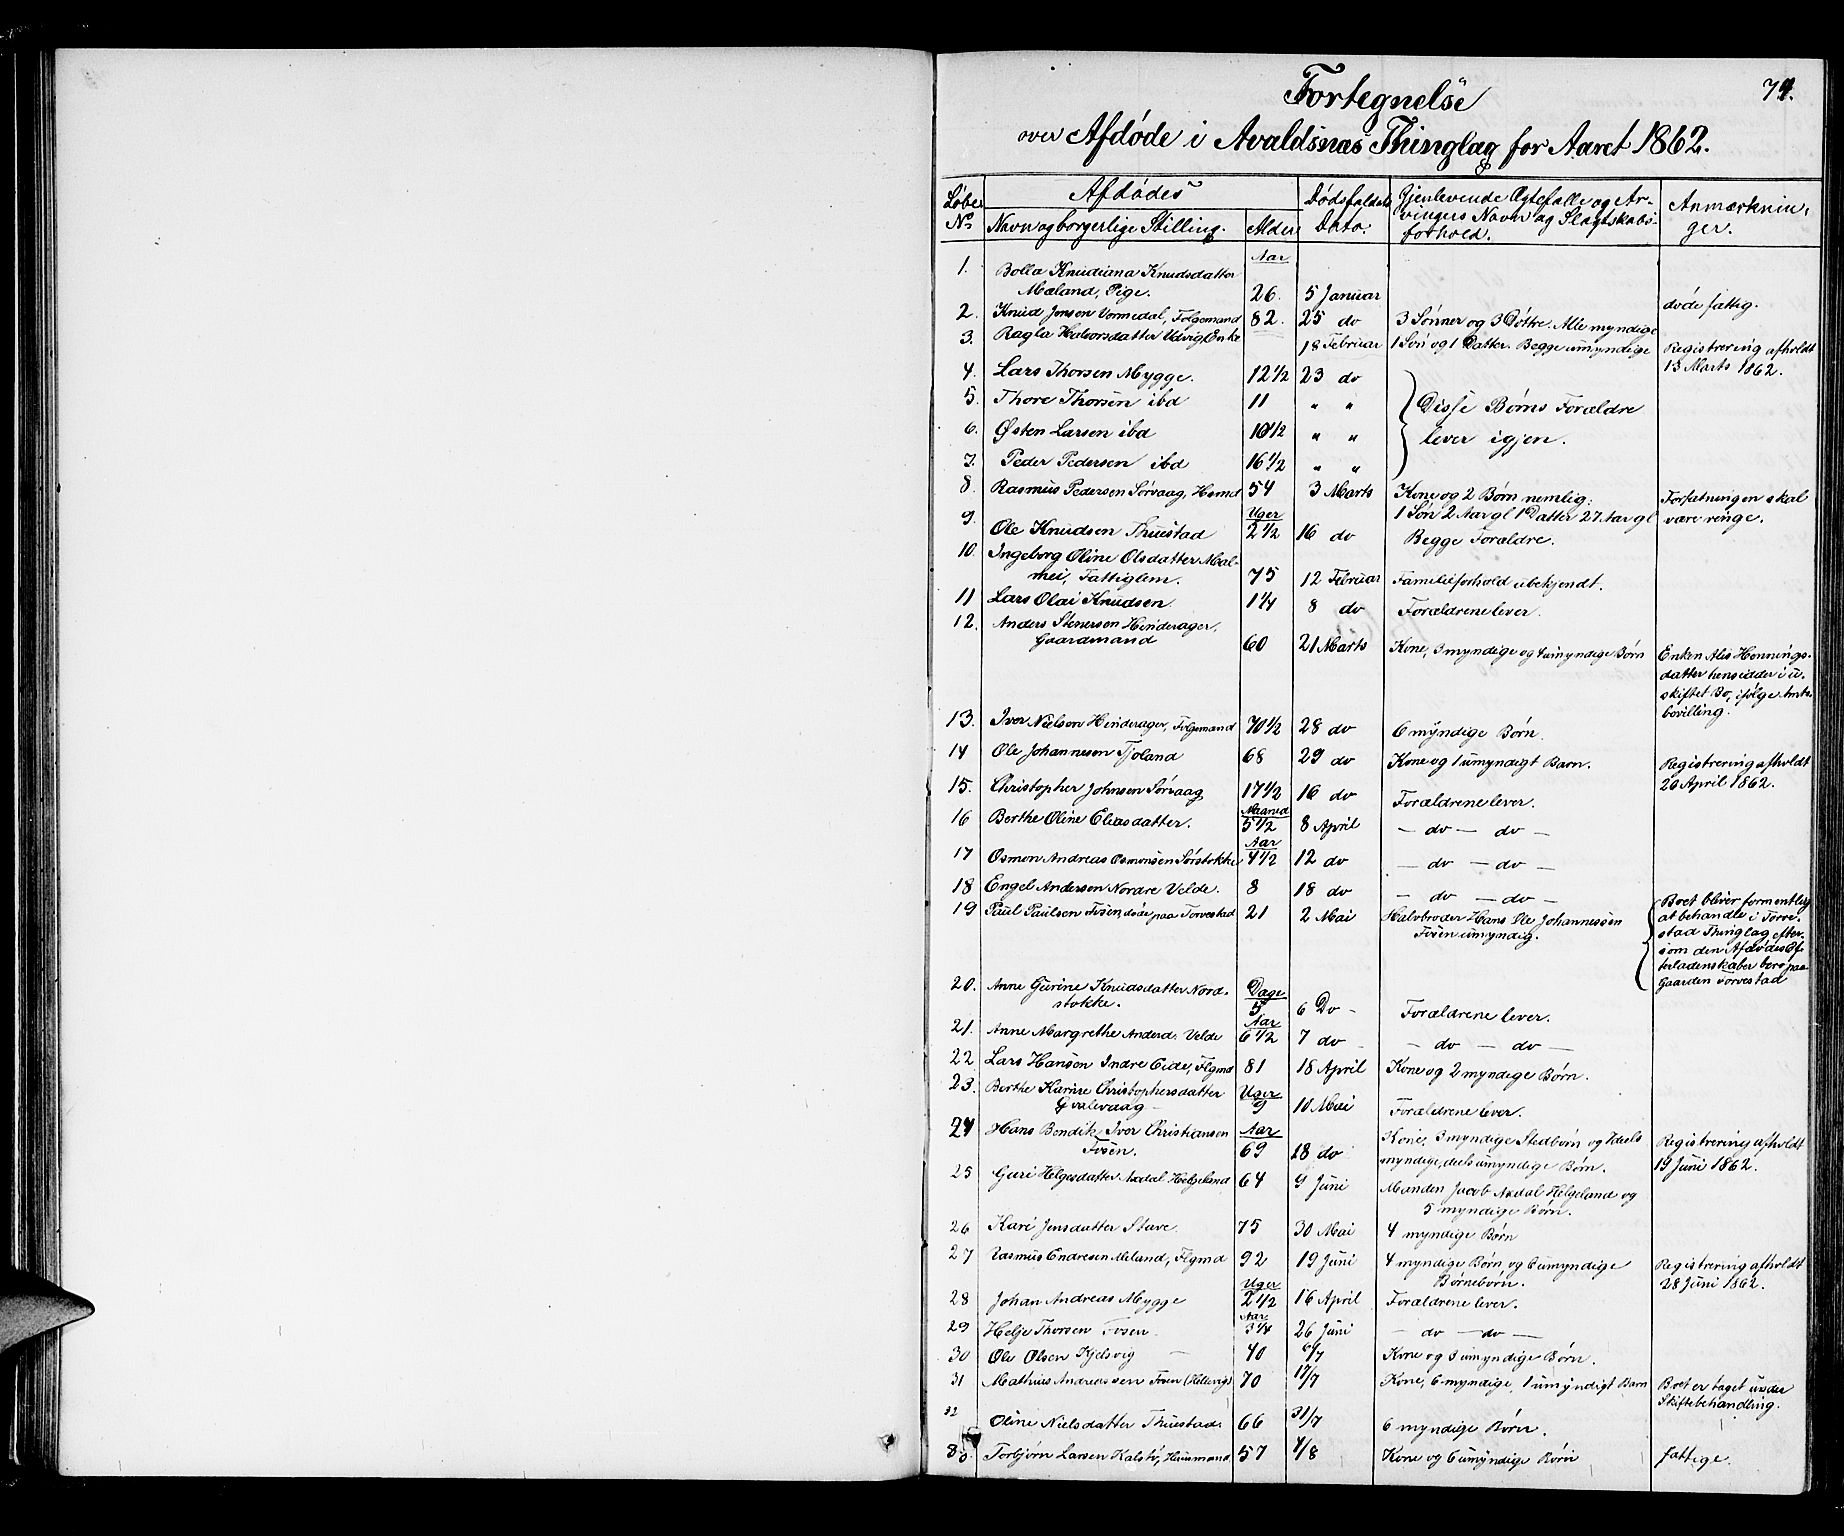 74.
Fortegnelse
over Afdøde i Avaldsnæs Thinglag for Aaret 1862.
Løbe No | Afdødes Navn og borgerlige Stilling. | Alder | Dødsfaldets Dato. | Gjenlevende Ægtefælle og Arvingers Navn og Slægtskabsforhold. | Anmærkninger.
Aar
1. Bolla Knudiana Knudsdatter
Mæland, Pige. 26. 5 Januar døde fattig.
2. Knud Jensen Vormedal, Folgemand 82. 25 do 3 Sønner og 3 Døttre. Alle myndige
3. Ragla Halvorsdatter Udvig, Enke 18 Februar 1 Søn og 1 Datter. Begge umyndige Registrering afholdt
13 Marts 1862.
4. Lars Thorsen Mygge. 12 1/2 23 do
5. Thore Thorsen ibd 11 " " Disse Børns Forældre
6. Østen Larsen ibd 10 1/2 " " lever igjen.
7. Peder Pedersen ibd 16 1/2 " "
8. Rasmus Pedersen Sørvaag, Hsmd 54 3 Marts Kone og 2 Børn nemlig: Forfatningen skal
1 Søn 2 Aar gl 1 Datter 27 Aar gl være ringe.
9. Uger
Ole Knudsen Thuestad 2 1/2 16 do Begge Forældre.
10. Ingeborg Oline Olsdatter Mal-
mei, Fattiglem. 75 12 Februar Familieforhold ubekjendt.
11 Lars Olai Knudsen 1 1/4 8 do Forældrene lever.
12. Anders Stenersen Hinderager,
Gaardmand 60 21 Marts Kone, 3 myndige og 4 umyndige Børn Enken Alis Hennings-
datter hensidder i u-
skiftet Bo, ifølge Amts-
bevilling.
13. Iver Nielsen Hinderager, Folgemand 70 1/2 28 do 6 myndige Børn.
14 Ole Johannesen Tjoland 68 29 do Kone og 1 umyndigt Barn. Registrering afholdt
20 April 1862.
15. Christopher Johnsen Sørvaag 17 1/2 16 do Forældrene lever.
Maaned
16 Berthe Oline Eliasdatter. 5 1/2 8 April — do — do —
Aar
17 Osmon Andreas Osmonsen Sørstokke 4 1/2 12 do — do — do —
18 Engel Andersen Nordre Velde. 8 18 do — do — do —
19 Paul Paulsen Fosen døde paa Torvestad 21 2 Mai Halvbroder Hans Ole Johannessen
Fosen umyndig.
Boet bliver formentlig
at behandle i Torve-
stad Thinglag efter-
som den Afdødes Ef-
terladenskaber bero paa
Gaarden Torvestad
20. Anne Gurine Knudsdatter Nord- Dage
stokke. 5 6 Do — Forældrene lever.
Aar
21. Anne Margrethe Andersd. Velde 6 1/2 7 do — — do — do —
22 Lars Hansen Indre Eide, Flgmd 81 18 April Kone og 2 myndige Børn.
23. Berthe Karine Christophersdatter Uger
Gvalevaag — 9 10 Mai Forældrene lever.
24 Hans Bendik Iver Christiansen Aar Kone, 3 myndige Stedbørn og 7 deels Registrering afholdt
Fosen. 69 28 do myndige, deels umyndige Børn. 19 Juni 1862.
25 Guri Helgesdatter Nædal Helgeland 64 9 Juni Manden Jacob Nædal Helgeland og
5 myndige Børn.
26 Kari Jensdatter Stave 75 30 Mai 4 myndige Børn
27 Rasmus Endresen Meland, Flgmd 92 19 Juni 4 myndige Børn og 6 umyndige Registrering afholdt
Børnebørn. 28 Juni 1862.
Uger
28 Johan Andreas Mygge 2 1/2 16 April Forældrene lever.
Aar
29 Helje Thorsen Fosen 3 1/4 26 Juni — do — do —
30 Ole Olsen Kjelsvig — 40 6/7 Kone og 3 umyndige Børn.
31 Mathias Andreassen Fosen (Helling) 70 17/7 Kone, 6 myndige, 1 umyndigt Barn Boet er taget under
Skiftebehandling.
32 Oline Nielsdatter Thuestad. 66 31/7 6 myndige Børn.
33. Torbjørn Larsen Kalstø, Huusmand 57 4/8 Kone og 6 umyndige Børn fattige.